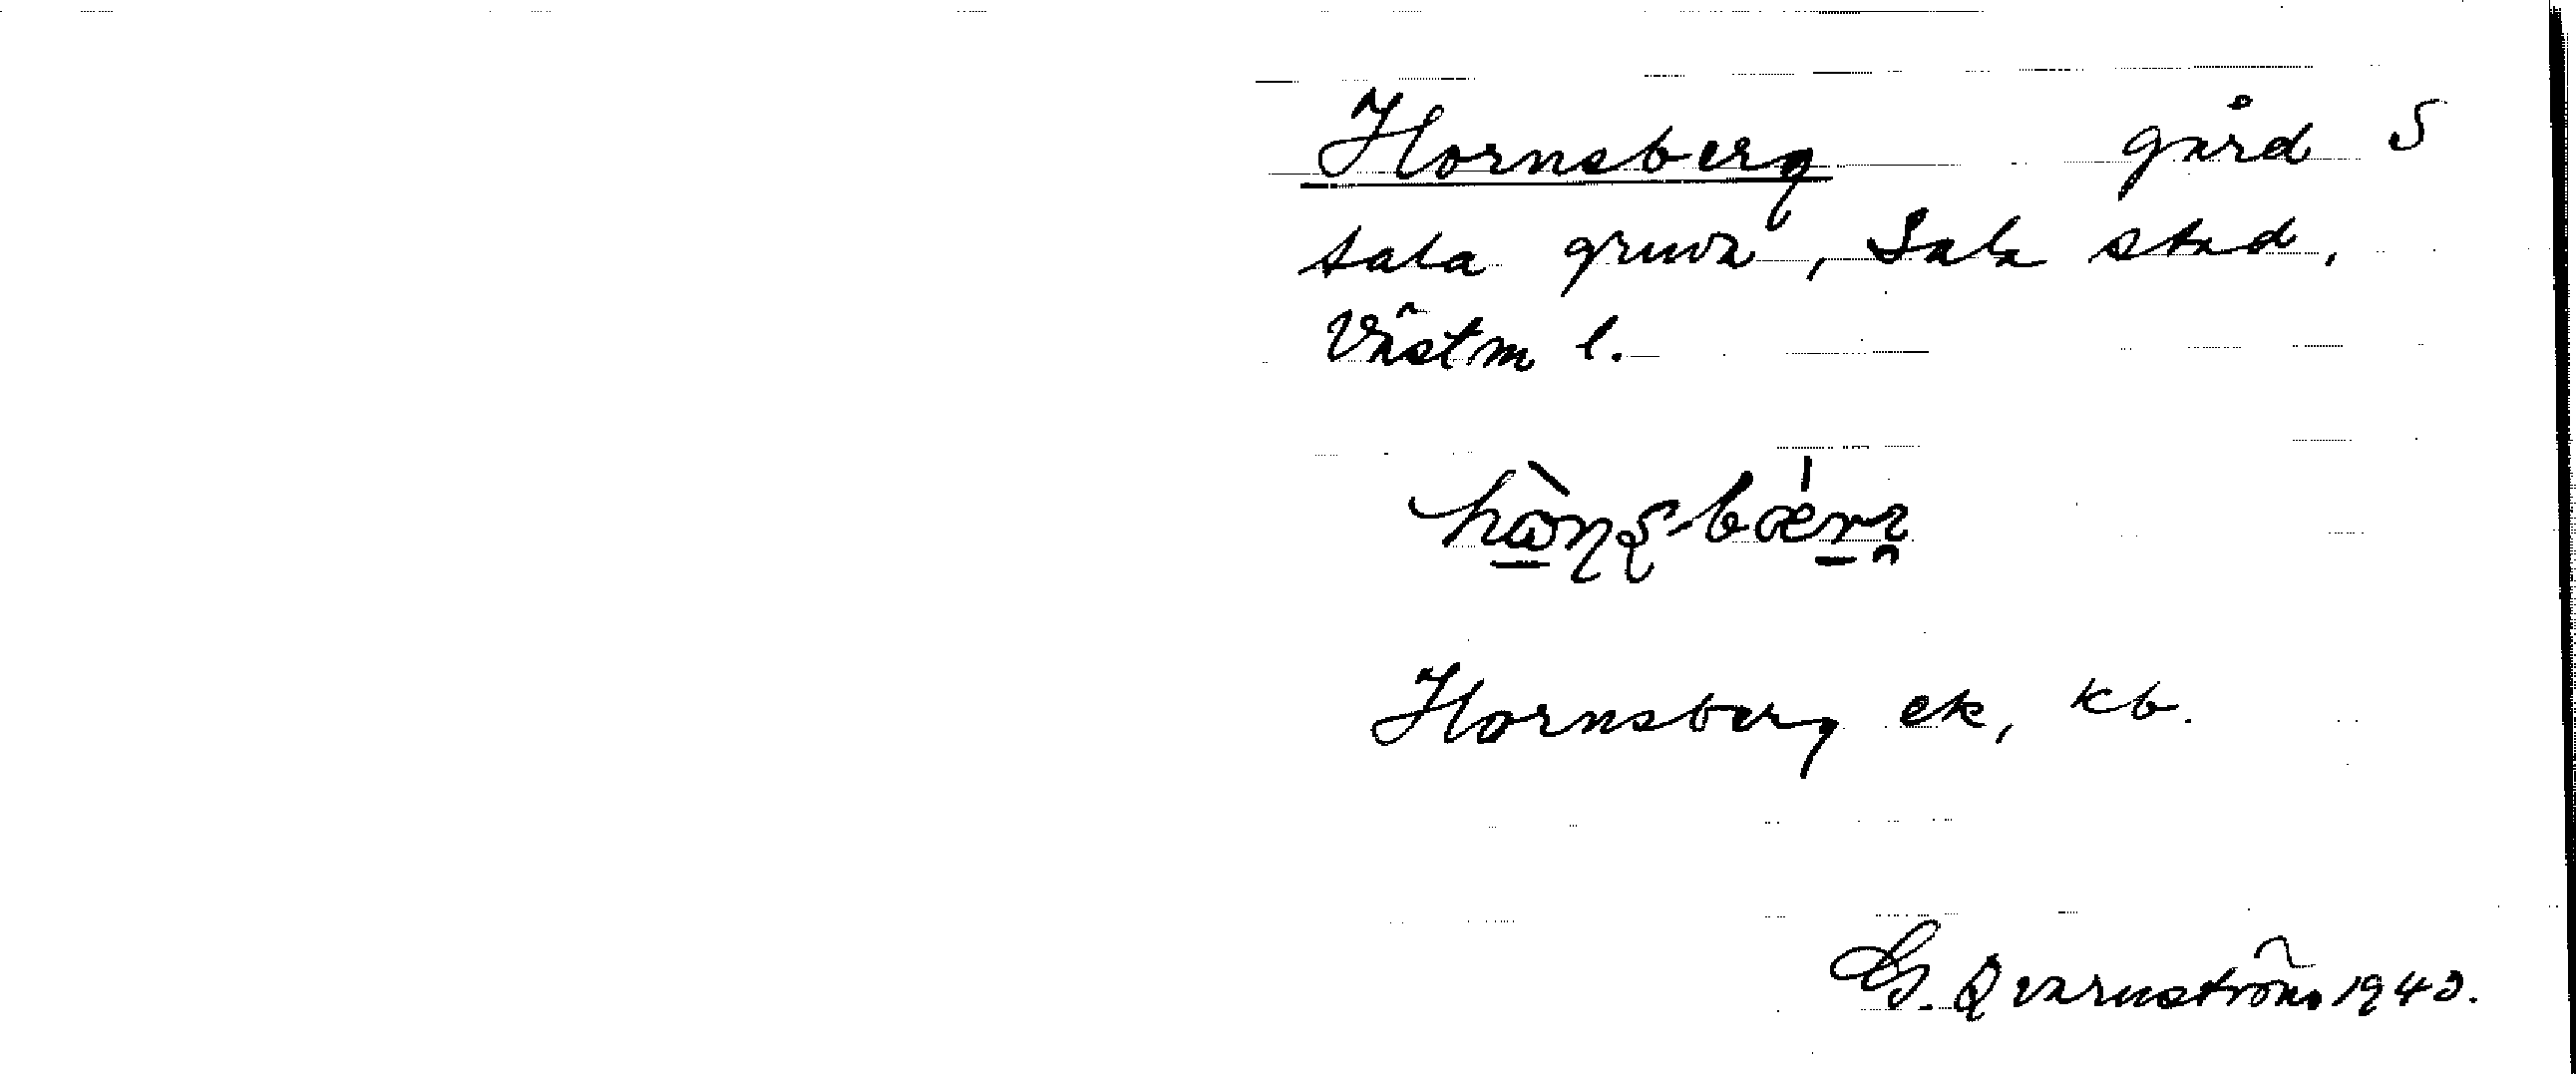 Hornsberg gård S
Sala gruva, Sala stad,
Västm l.
Hornsberg ek, kb.
G. Qvarnström 1940.